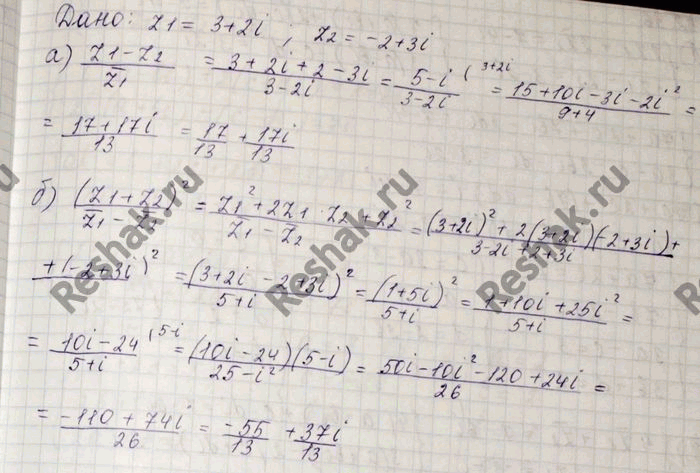 Дано: z1 = 3+2i ; z2 = -2+3i
а) (z1-z2)/z̄1 = (3+2i+2-3i)/(3-2i) = (5-i)/(3-2i) (3+2i = (15+10i-3i-2i²)/(9+4) =
= (17+17i)/13 = 17/13 + 17i/13
б) (z1+z2)²/(z̄1-z̄2) = (z1²+2z1·z2+z2²)/(z̄1-z̄2) = ((3+2i)²+2(3+2i)(-2+3i)+)/(3-2i+2+3i)
+(-2+3i)² = (3+2i-2+3i)²/(5+i) = (1+5i)²/(5+i) = (1+10i+25i²)/(5+i) =
= (10i-24)/(5+i) (5-i = (10i-24)(5-i)/(25-i²) = (50i-10i²-120+24i)/26 =
= (-110+74i)/26 = -55/13 + 37i/13
Reshak.ru
Reshak.ru
Reshak.ru
Reshak.ru